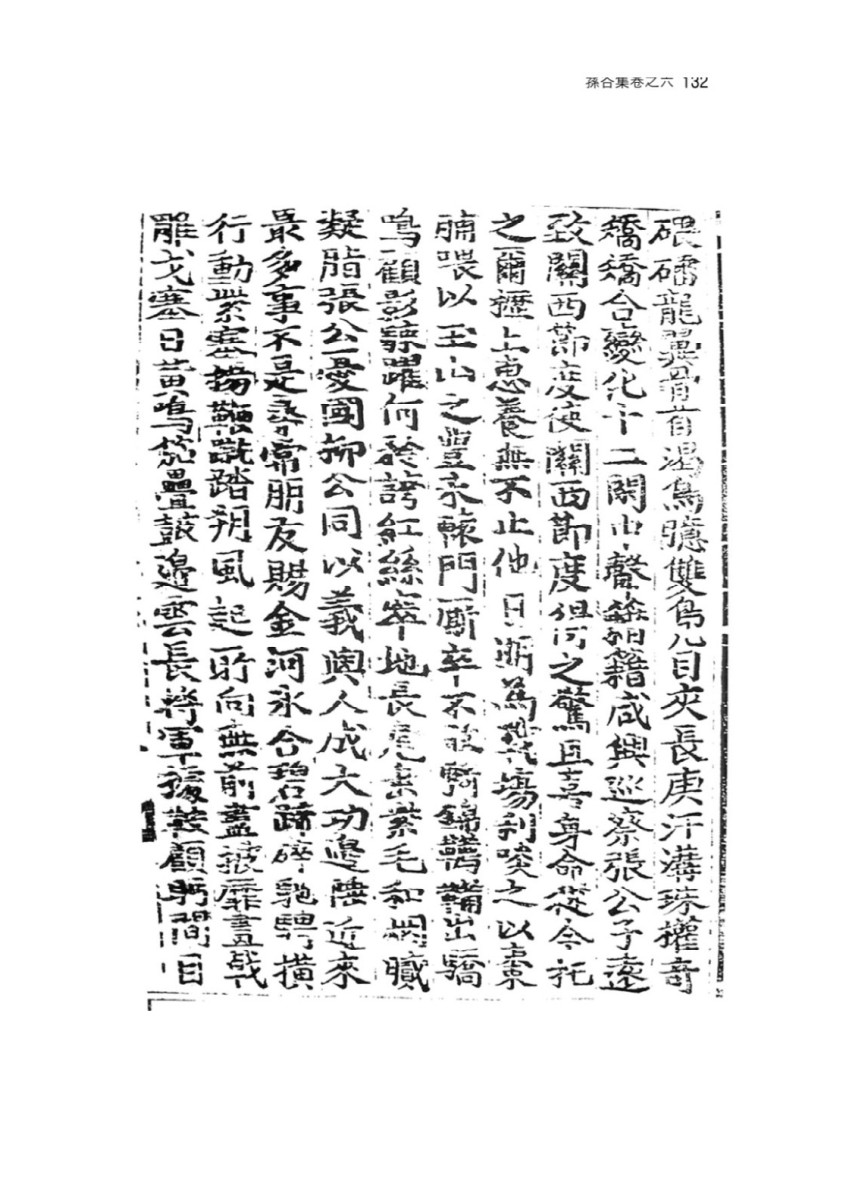 孫谷集卷之六 132
磥磻龍翼骨首渴烏臆雙鳧目夾長庚汗溝珠權奇
矯矯合變化十二閑中聲籍籍咸興巡察張公子遠
致關西節度使關西節度但何之驚且喜身命從今托
之爾攊上惠養無不止他日期爲戰場利啖之以棗
脯喂以玉山之豐禾轅門廝卒不敢騎錦韉韝出驕
鳴顧影騄躍何矜誇紅絲窣地長尾素紫毛和闐膩
凝脂張公憂國柳公同以義與人成大功邊陲近來
最多事不是尋常朋友賜金河氷合碧蹄碎馳騁橫
行動紫塞揚鞭蹴踏朔風起所向無前盡披靡畫戟
雕戈塞日黃鳴笳疊鼓邊雲長將軍據鞍顧眄間目